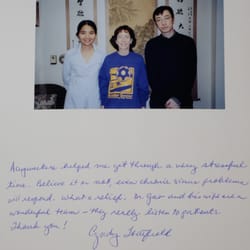 Acupuncture helped me get through a very stressful
time. Believe it or not, even chronic sinus problems
will respond. What a relief. Dr. Gao and his wife are a
wonderful team – they really listen to patients.
Thank you!
Hatfield